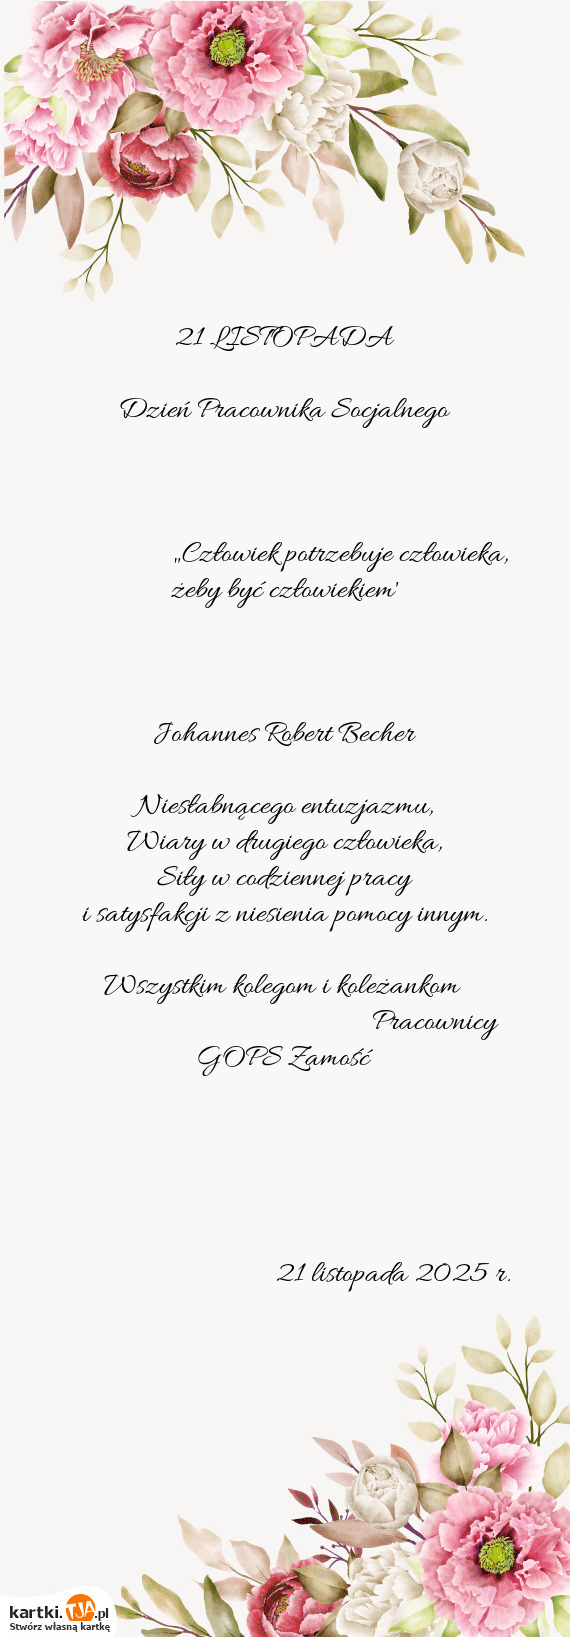 21 LISTOPADA
Dzień Pracownika Socjalnego
„Człowiek potrzebuje człowieka,
żeby być człowiekiem'
Johannes Robert Becher
Niesłabnącego entuzjazmu,
Wiary w drugiego człowieka,
Siły w codziennej pracy
i satysfakcji z niesienia pomocy innym.
Wszystkim kolegom i koleżankom
Pracownicy
GOPS Zamość
21 listopada 2025 r.
kartki.TJA.pl
Stwórz własną kartkę